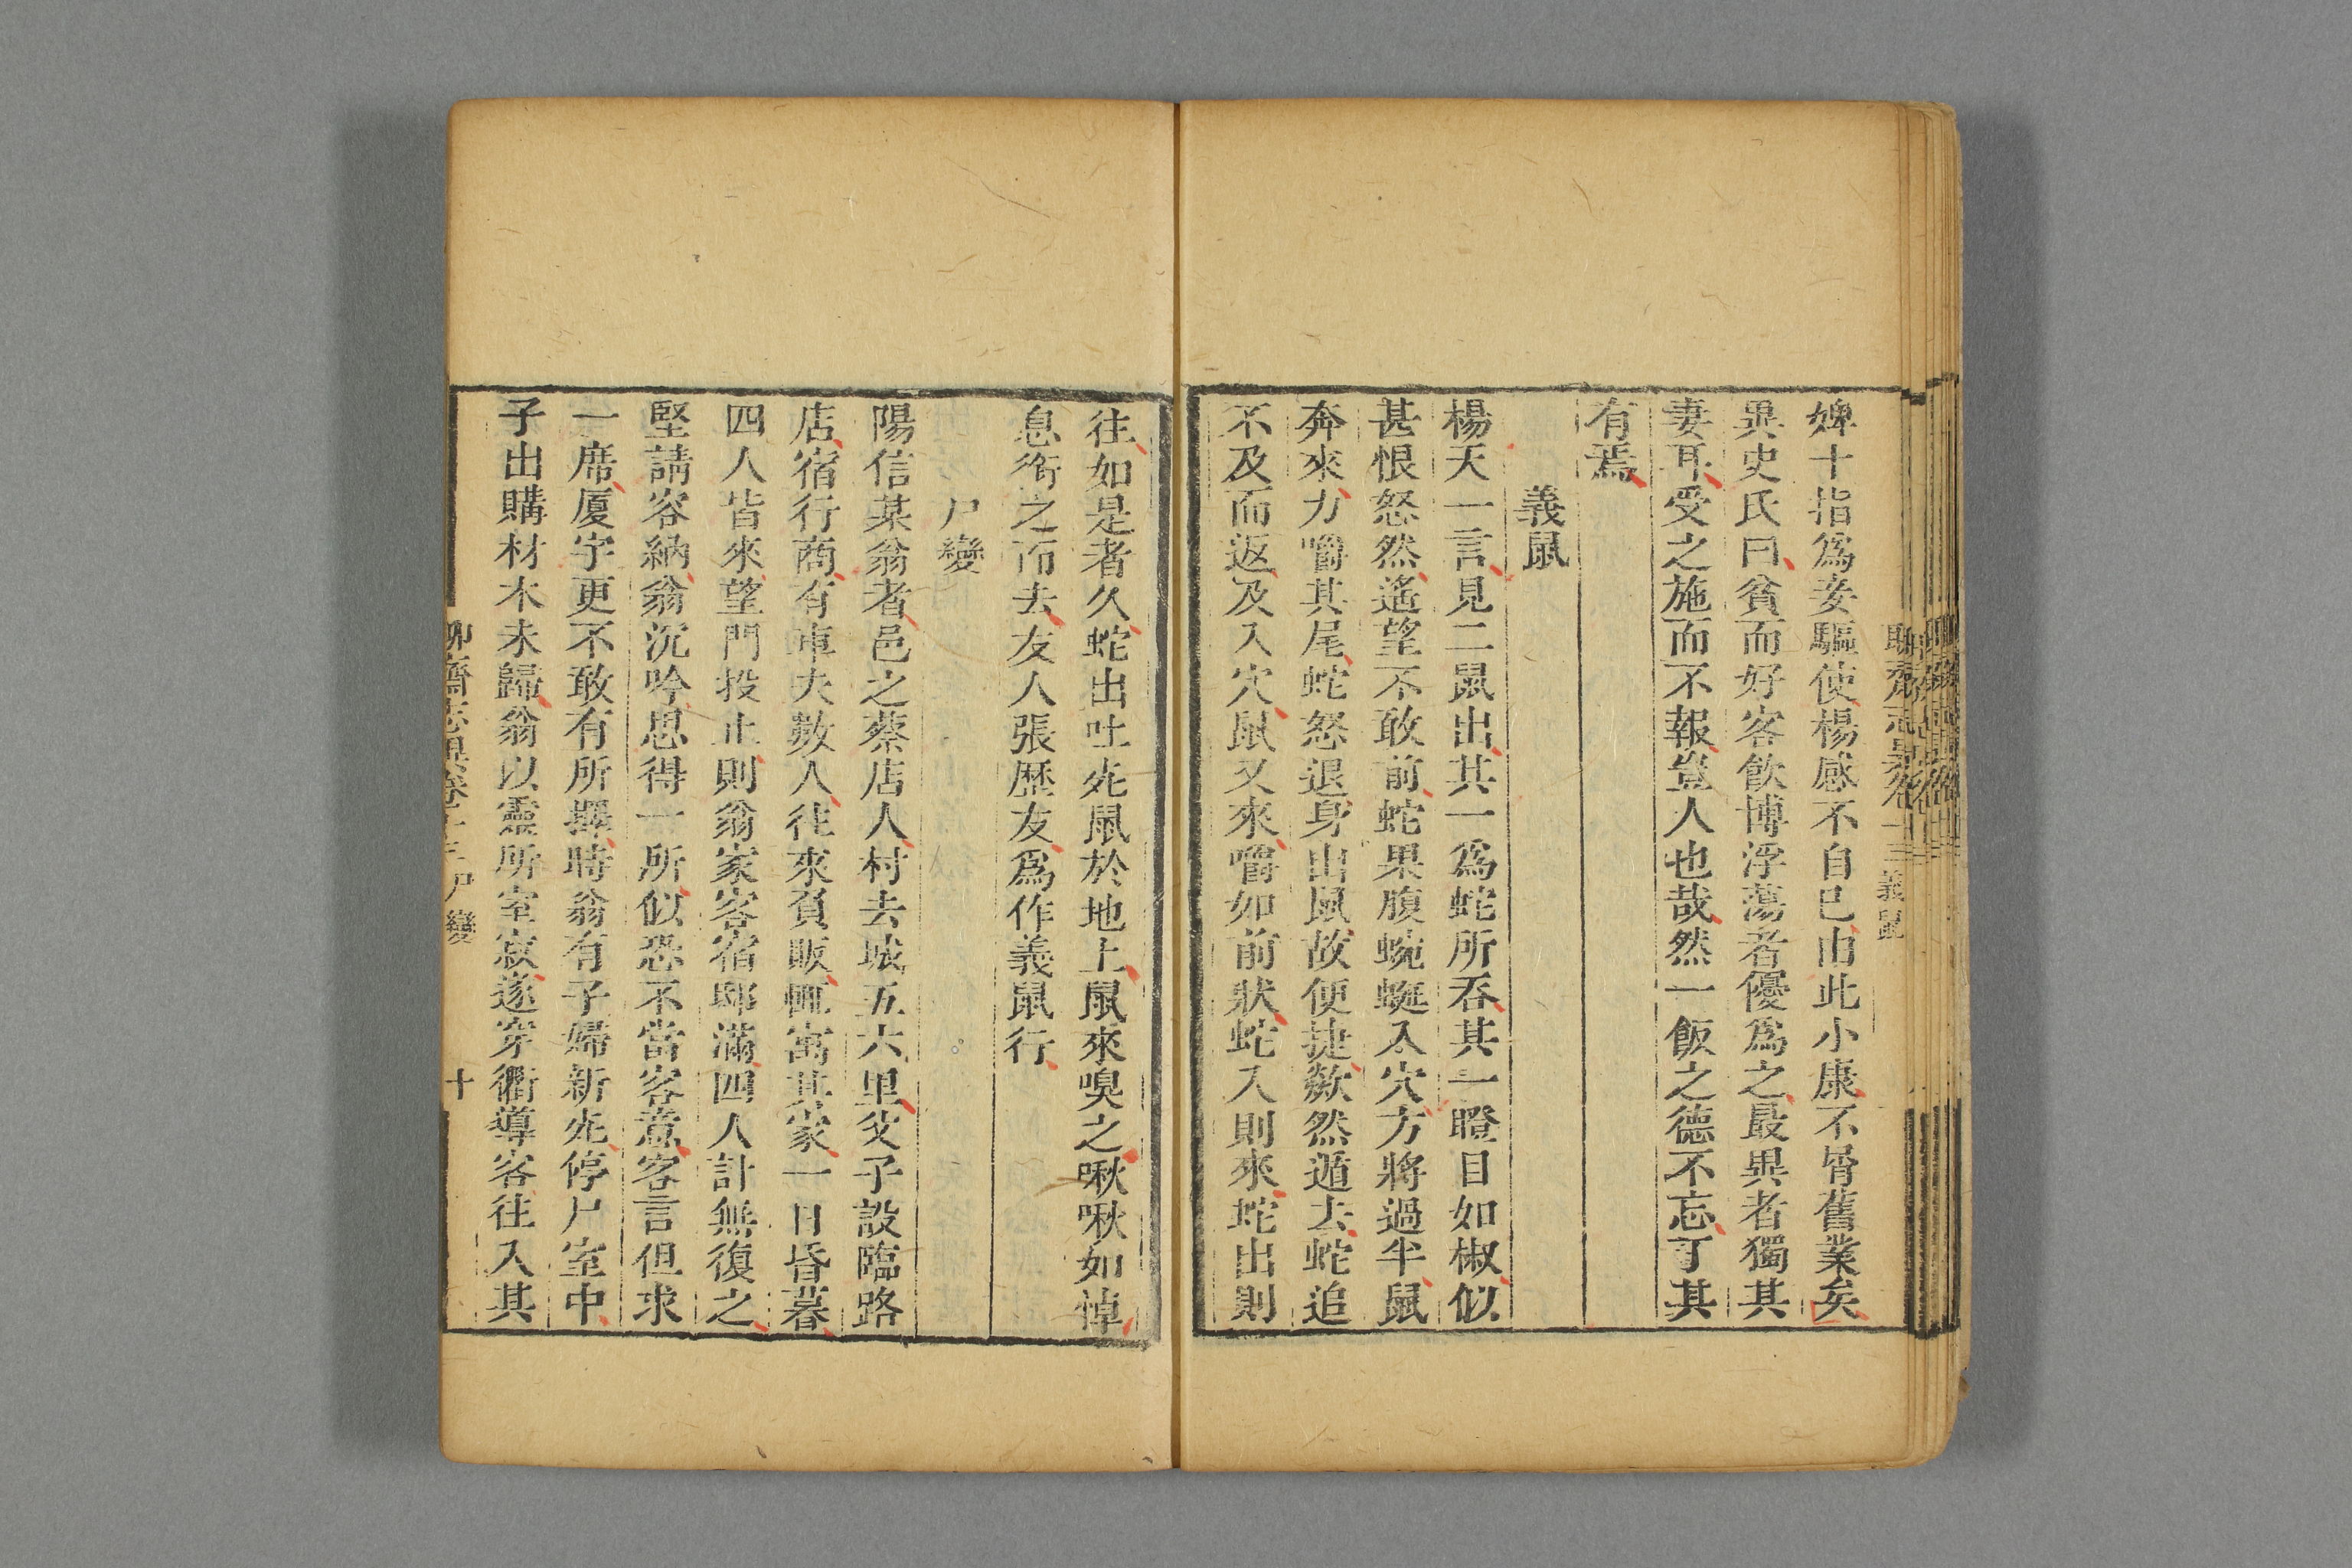 婢十指爲妾驅使楊感不自已由此小康不屑舊業矣
異史氏曰貧而好客飲博浮蕩者優爲之最異者獨其
妻耳受之施而不報豈人也哉然一飯之德不忘丁其
有焉
義鼠
楊天一言見二鼠出其一爲蛇所吞其一瞪目如椒似
甚恨怒然遙望不敢前蛇果腹蜿蜒入穴方將過半鼠
奔來力嚼其尾蛇怒退身出鼠故便捷欻然遁去蛇追
不及而返及入穴鼠又來嚼如前狀蛇入則來蛇出則
往如是者久蛇出吐死鼠於地上鼠來嗅之啾啾如悼
息銜之而去友人張歷友爲作義鼠行
尸變
陽信某翁者邑之蔡店人村去城五六里父子設臨路
店宿行商有車夫數人往來負販輒寓其家一日昏暮
四人皆來望門投止則翁家客宿邸滿四人計無復之
堅請容納翁沉吟思得一所似恐不當客意客言但求
一席厦宇更不敢有所擇時翁有子婦新死停尸室中
子出購材木未歸翁以靈所室寂遂穿衢導客往入其
聊齋志異卷十三 尸變 十